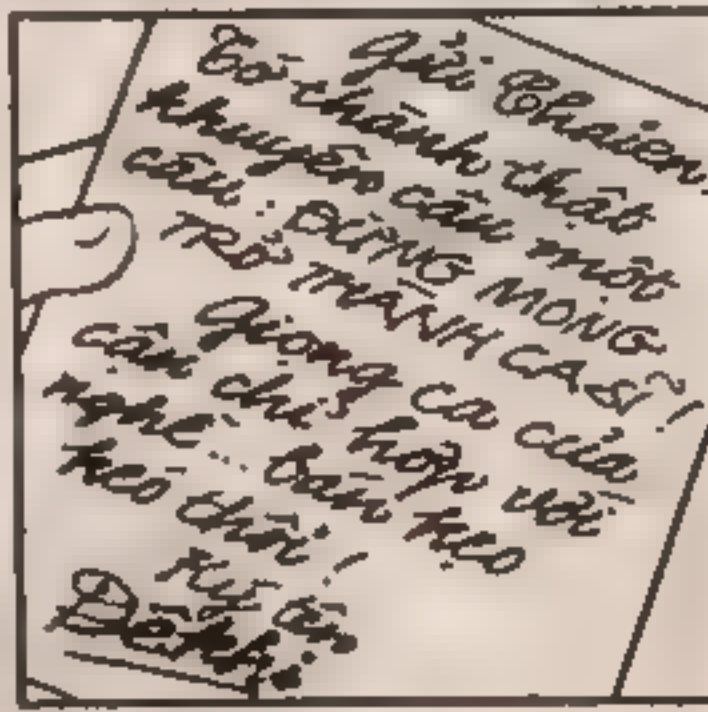 Gửi Chaien,
Tớ thành thật
khuyên cậu một
câu: ĐỪNG MONG
TRỞ THÀNH CA SĨ!
Giọng ca của
cậu chỉ hợp với
nghề... bán kẹo
kéo thôi!
Ký tên
Đêkhi